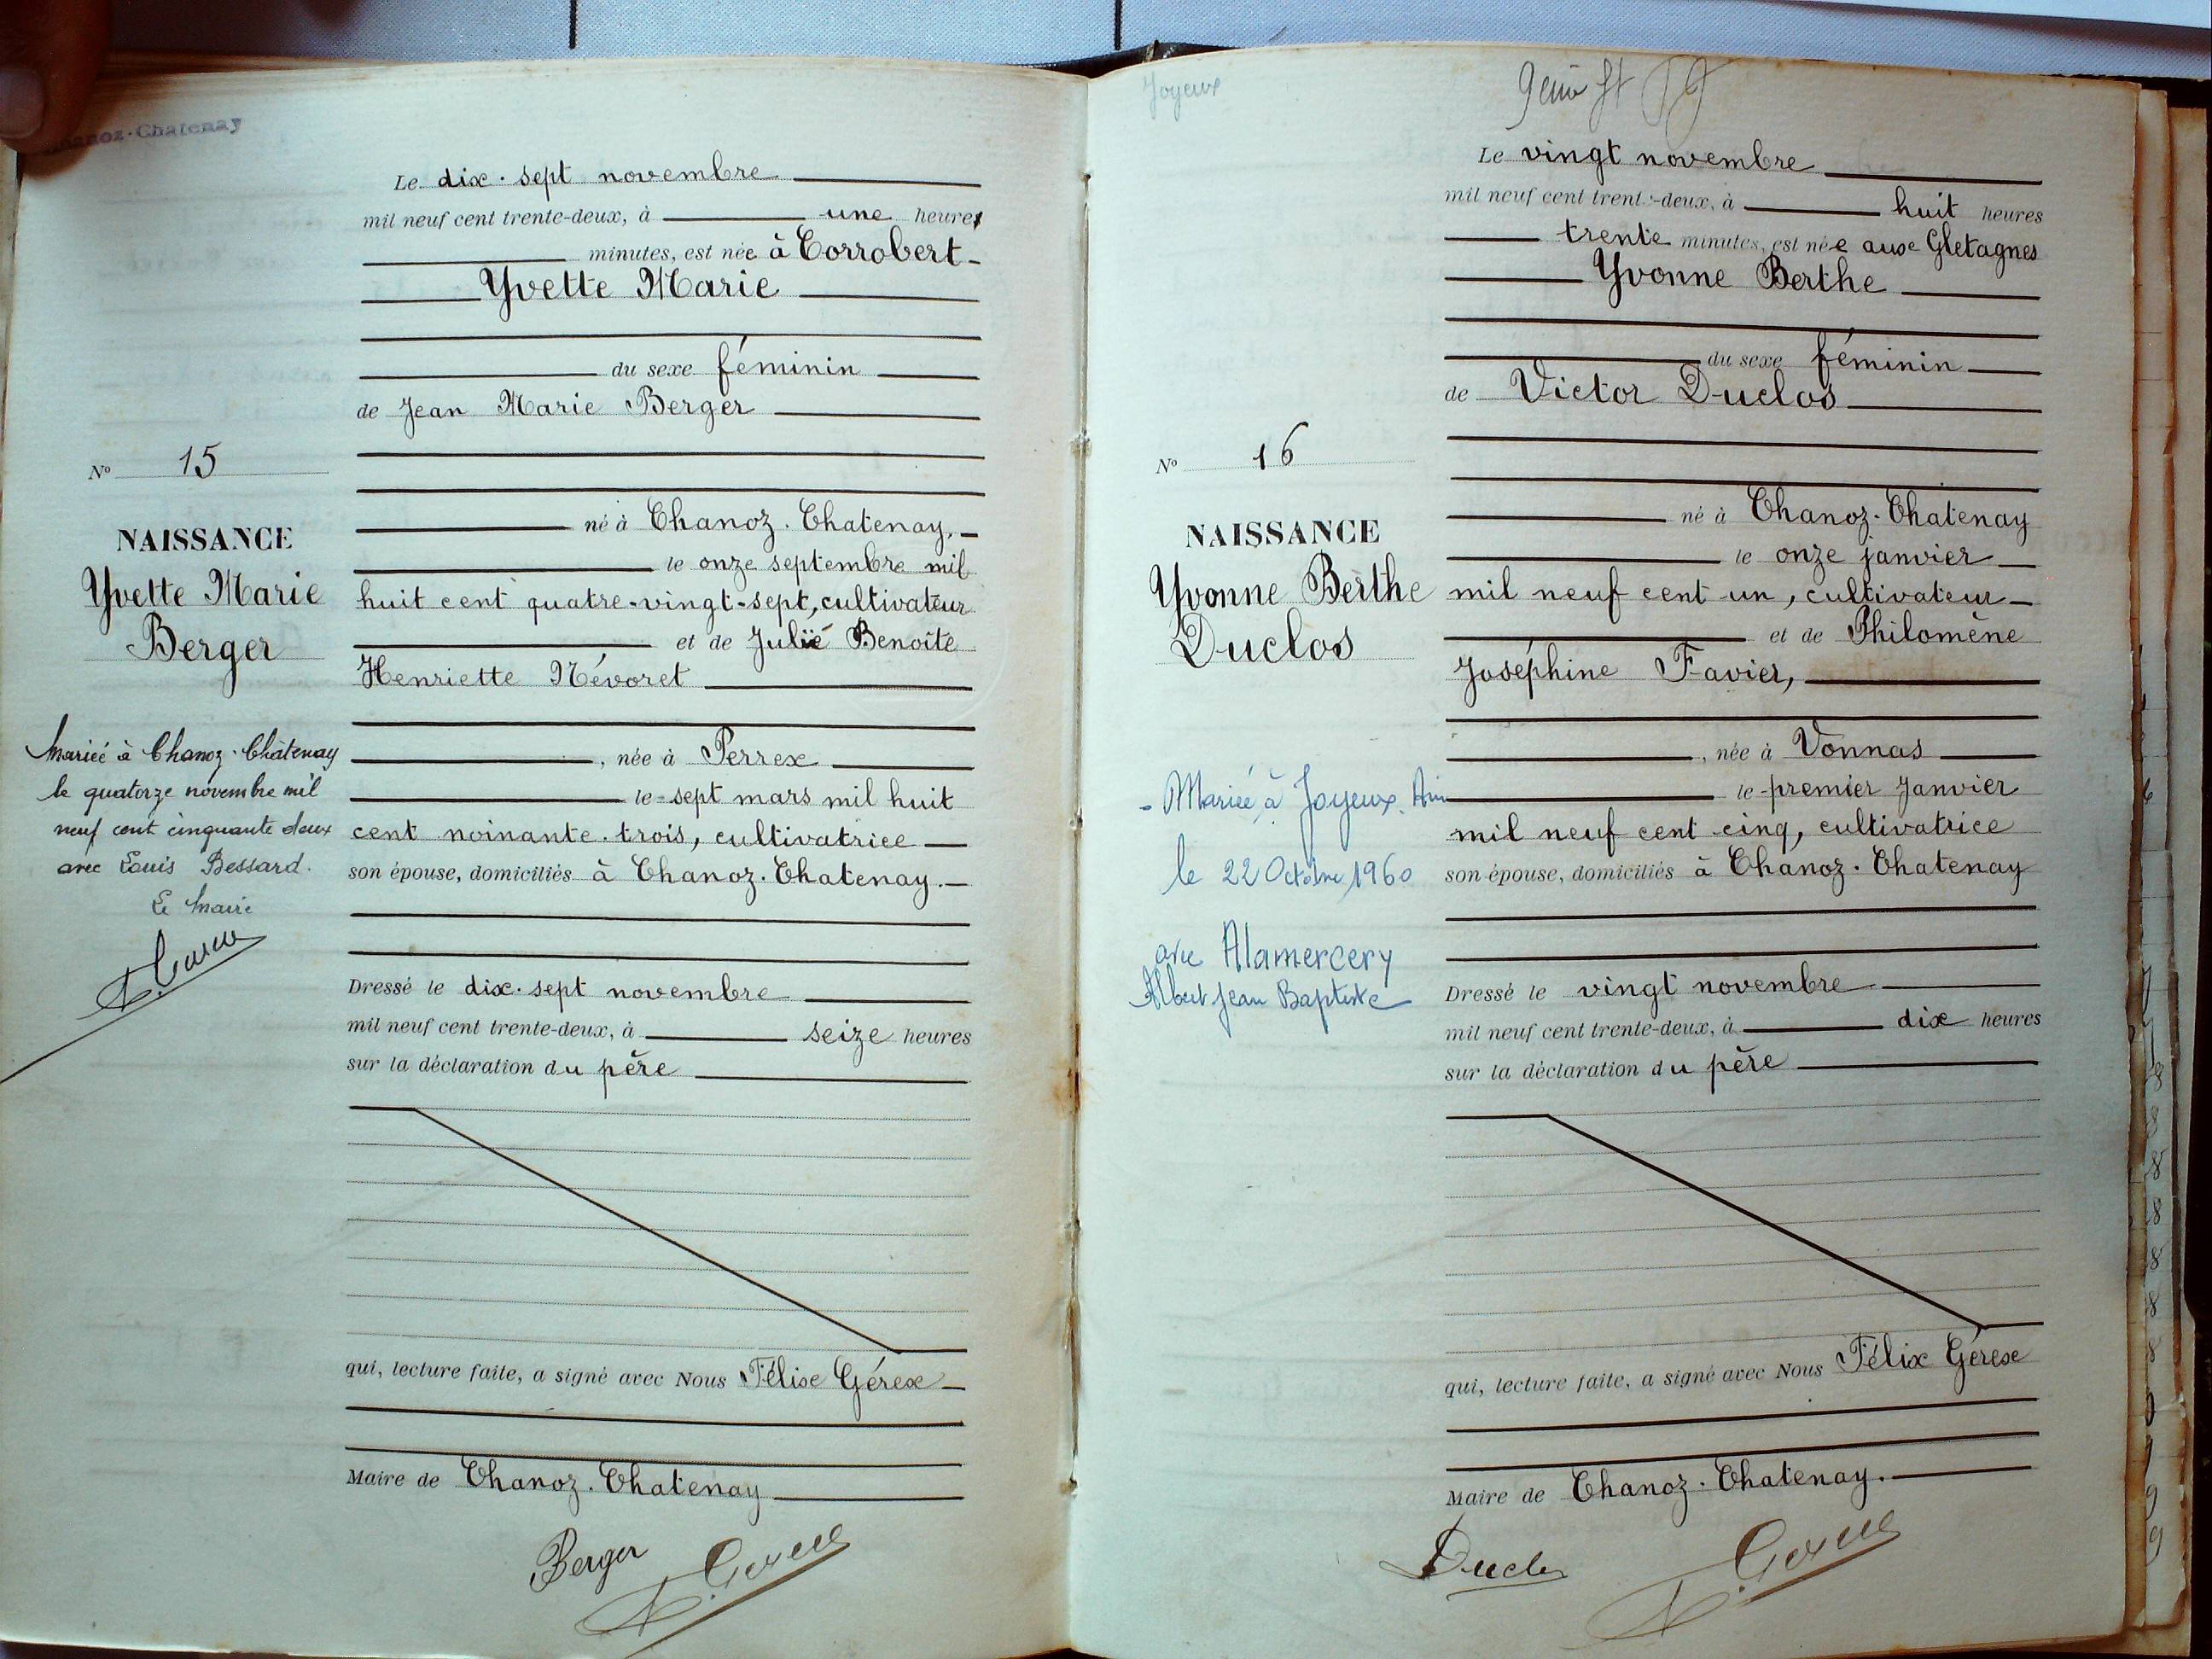 Chanoz-Chatenay
Le dix-sept novembre
mil neuf cent trente-deux, à une heure
minutes, est née à Corrobert
Yvette Marie
du sexe féminin
de Jean Marie Berger
né à Chanoz-Chatenay,
le onze septembre mil
huit cent quatre-vingt-sept, cultivateur
et de Julie Benoîte
Henriette Névoret
, née à Perrex
le sept mars mil huit
cent noinante-trois, cultivatrice
son épouse, domiciliés à Chanoz-Chatenay.
Dressé le dix-sept novembre
mil neuf cent trente-deux, à seize heures
sur la déclaration du père
qui, lecture faite, a signé avec Nous Félix Gérex
Maire de Chanoz-Chatenay
Berger
Nº 15
NAISSANCE
Yvette Marie
Berger
Mariée à Chanoz-Châtenay
le quatorze novembre mil
neuf cent cinquante deux
avec Louis Bessard.
Le Maire
Joyeux
Le vingt novembre
mil neuf cent trente-deux, à huit heures
trente minutes, est née aux Gletagnes
Yvonne Berthe
du sexe féminin
de Victor Duclos
né à Chanoz-Chatenay
le onze janvier
mil neuf cent un, cultivateur
et de Philomène
Joséphine Favier,
, née à Vonnas
le premier Janvier
mil neuf cent cinq, cultivatrice
son épouse, domiciliés à Chanoz-Chatenay
Dressé le vingt novembre
mil neuf cent trente-deux, à dix heures
sur la déclaration du père
qui, lecture faite, a signé avec Nous Félix Gérex
Maire de Chanoz-Chatenay.
Duclos
Nº 16
NAISSANCE
Yvonne Berthe
Duclos
- Mariée à Joyeux. Ain
le 22 Octobre 1960
avec Alamercery
Albert Jean Baptiste